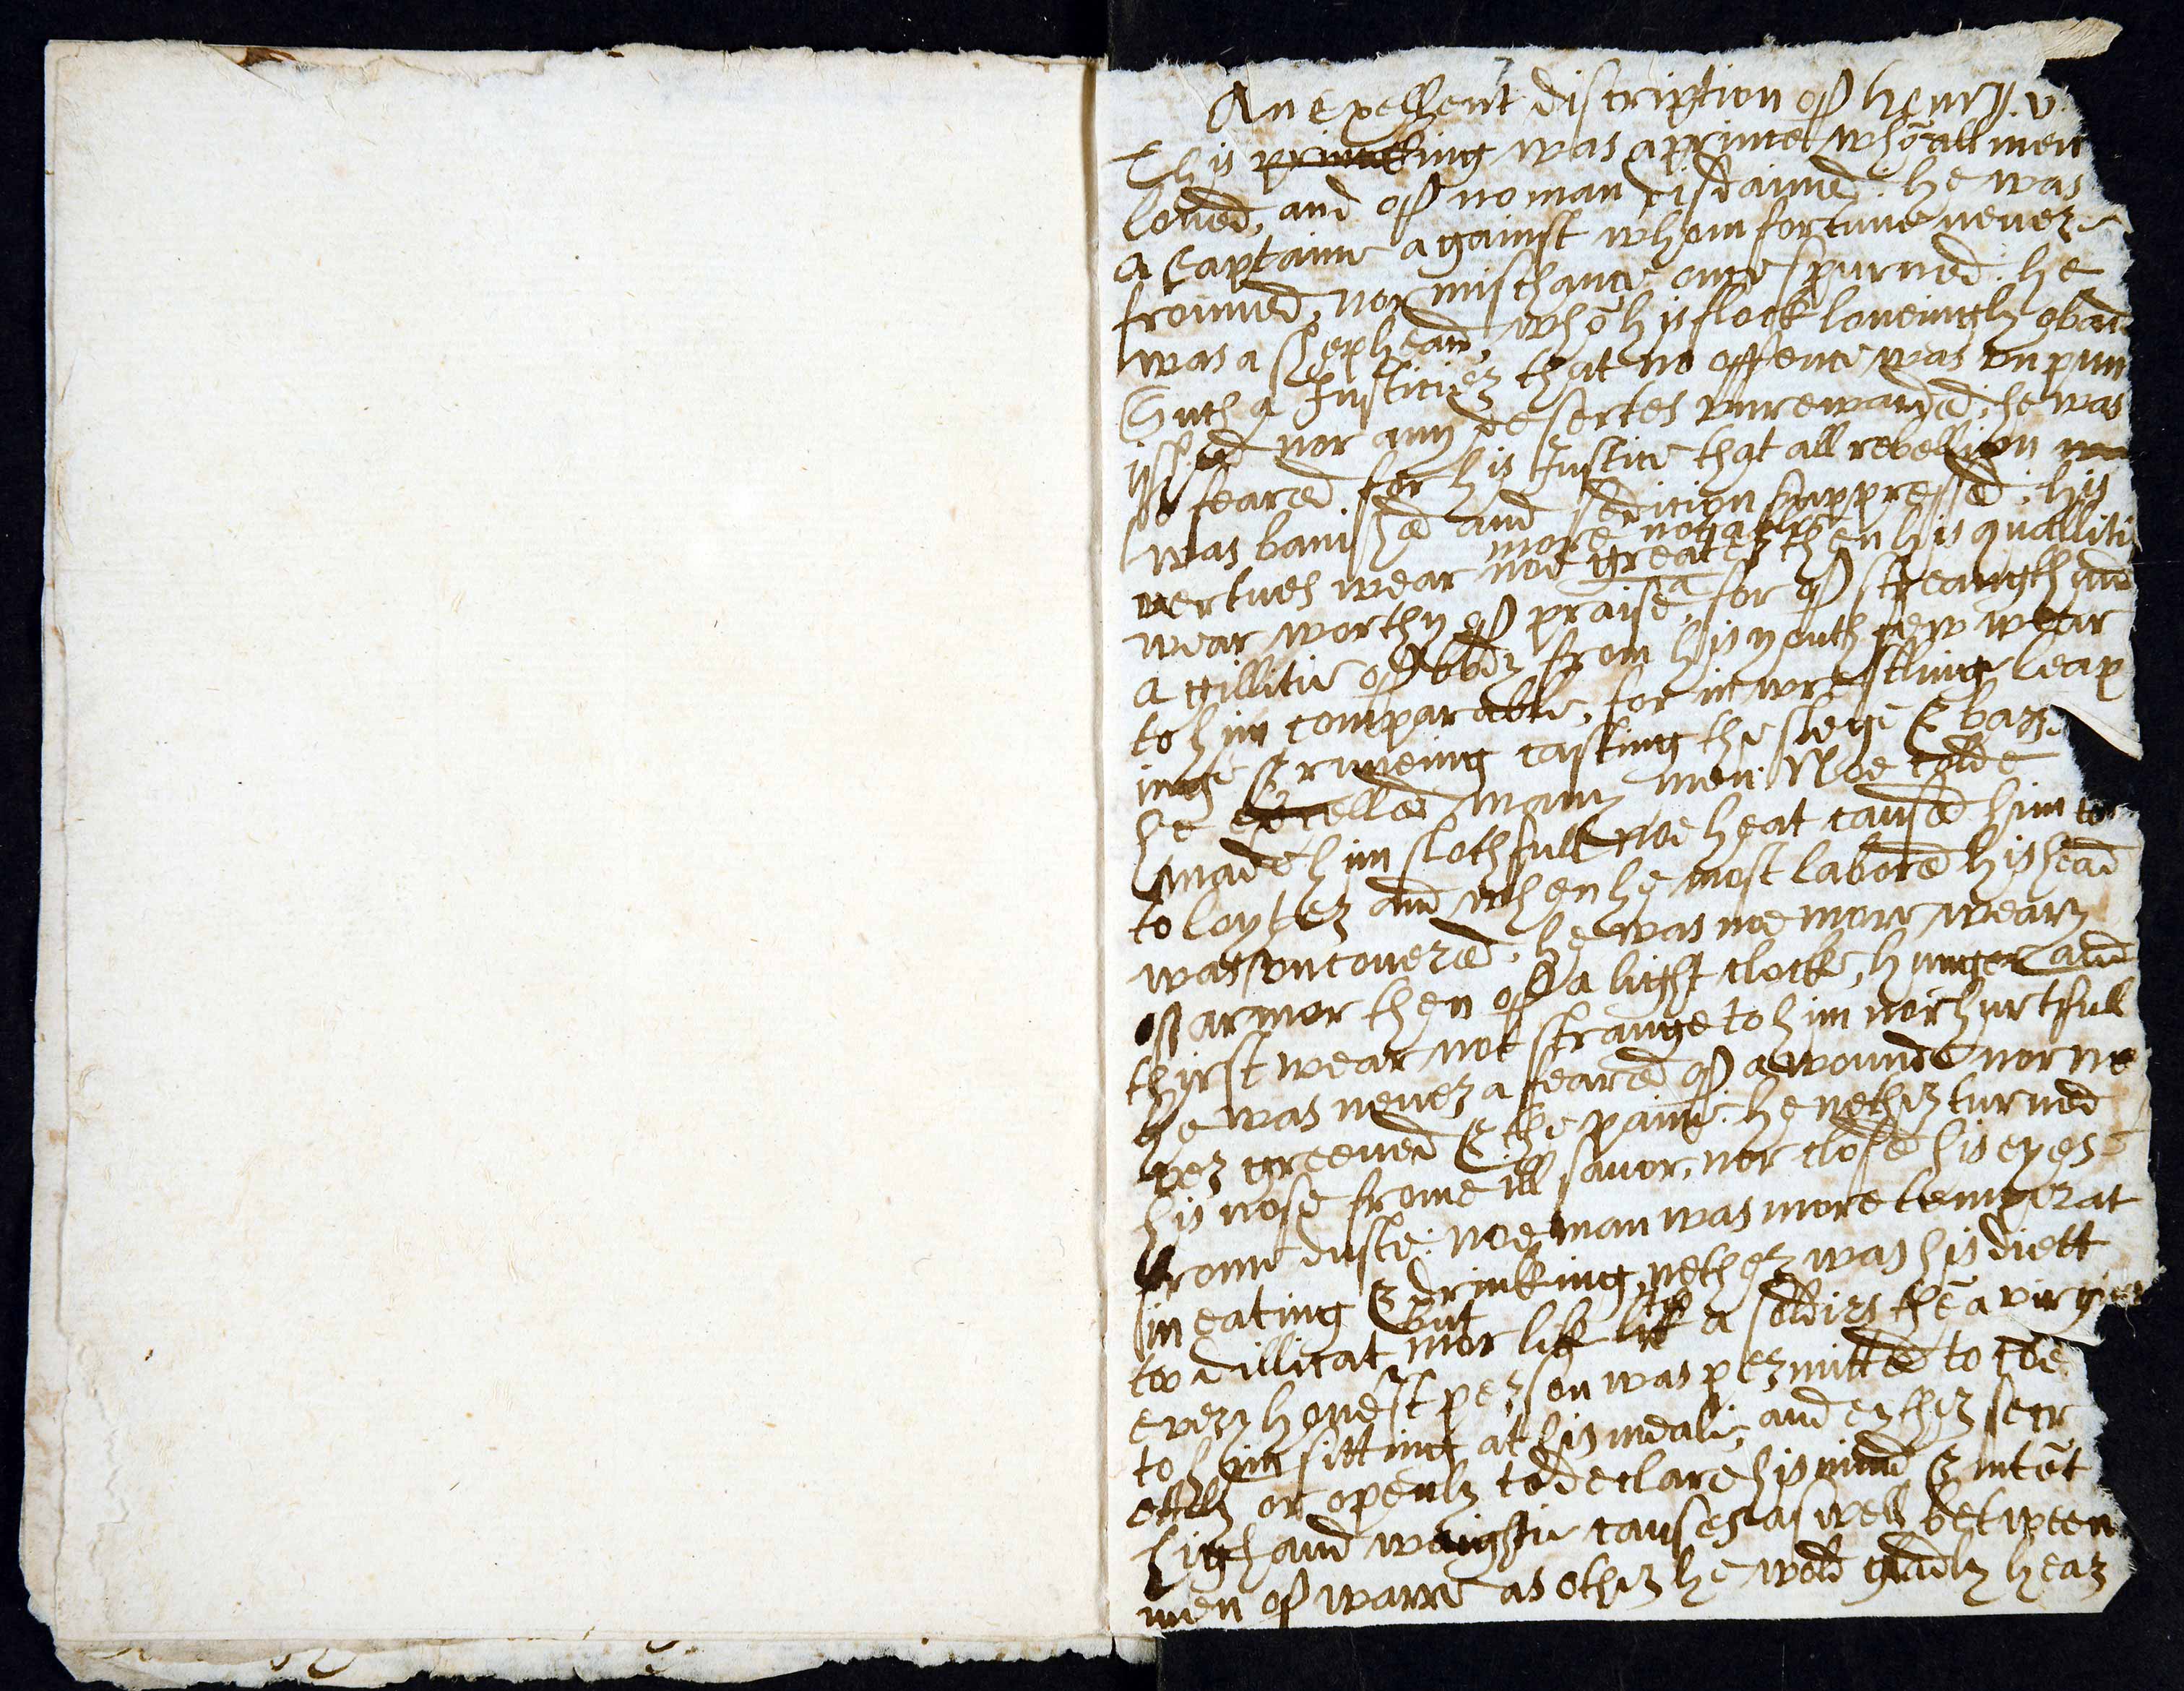 An Exellent discription off henry. v.
This king was a prince whō all men
loued, and off no man disdained. he was
a Captaine against whom fortune neuer
frowned, nor mischance once spurned. he
was a shepheard, whō his flock loueingly obaid
Such a Justicier that no offence was vnpun
isshed nor any desertes vnrewarded. he was
so feared for his Justice that all rebellion
was banished and sedicion suppressed. his
more notable
vertues wear noe greater then his qualliti
wear worthy off praise, for off streangth and
agillitie off body from his youth few wear
to him comparable, for in wrestling leap
inge & runeing casting the slege & barre
he excelled many men. Noe colde
made him slothfull noe heat caused him to
to loyter and when he most labored his head
was vncouered. he was noe more weary
off armor then off a light clocke, hunger and
thirst wear not strange to him nor hurtfull
he was neuer afeared off a wounde nor ne
uer greeued & the paine. he nether turned
his nose frome ill savor, nor closed his eyes
frome duste. noe man was more temperat
in eating & drinking, nether was his diett
but
too dillicat mor lik to a soldiers thē a virgins
every honest person was permitted to coe
to him sitting at his meale, and eyther secr
etlly or openly to declare his mind & intēt
high and waightie causes as well between
men off warre as other he wold gladly hear